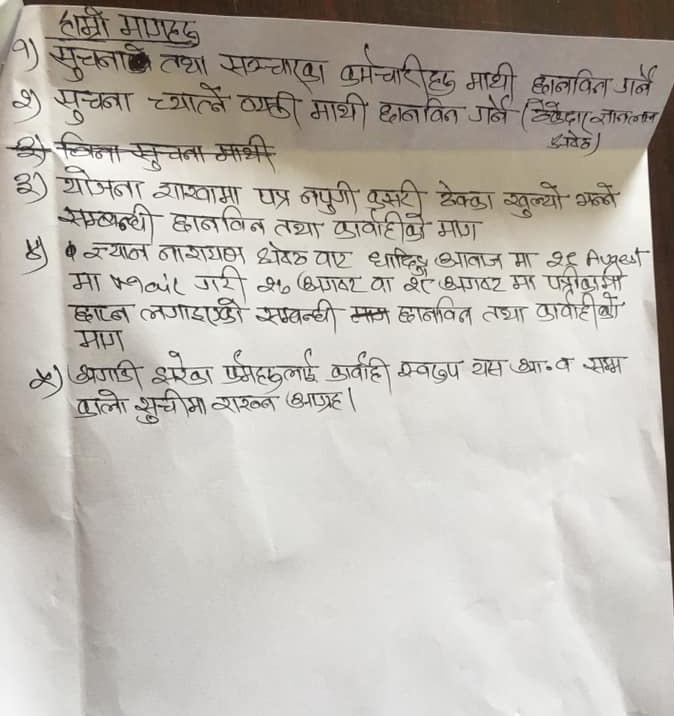 हाम्रो मागहरु
१) सुचना तथा सञ्चारका कर्मचारीहरु माथी छानविन गर्ने
२) सुचना च्यात्ने व्यक्ती माथी छानविन गर्ने (ठेकेदार
श्रेष्ठ)
३) विना सुचना माथी
३) योजना शाखामा पत्र नपुगी कसरी ठेक्का खुल्यो भन्ने
सम्बन्धी छानविन तथा कार्वाहीको माग
४) नारायण श्रेष्ठ वाट धादिङ्ग आवाज मा २९ August
मा mail गरी २८ अगष्ट वा २९ अगष्ट मा पत्रीकामा
छाप्न लगाइएको सम्बन्धी माग छानविन तथा कार्वाहीको
माग
५) अगाडी झरेका फर्महरुलाई कार्वाही स्वरुप यस आ.व सम्म
कालो सुचीमा राख्न आग्रह।